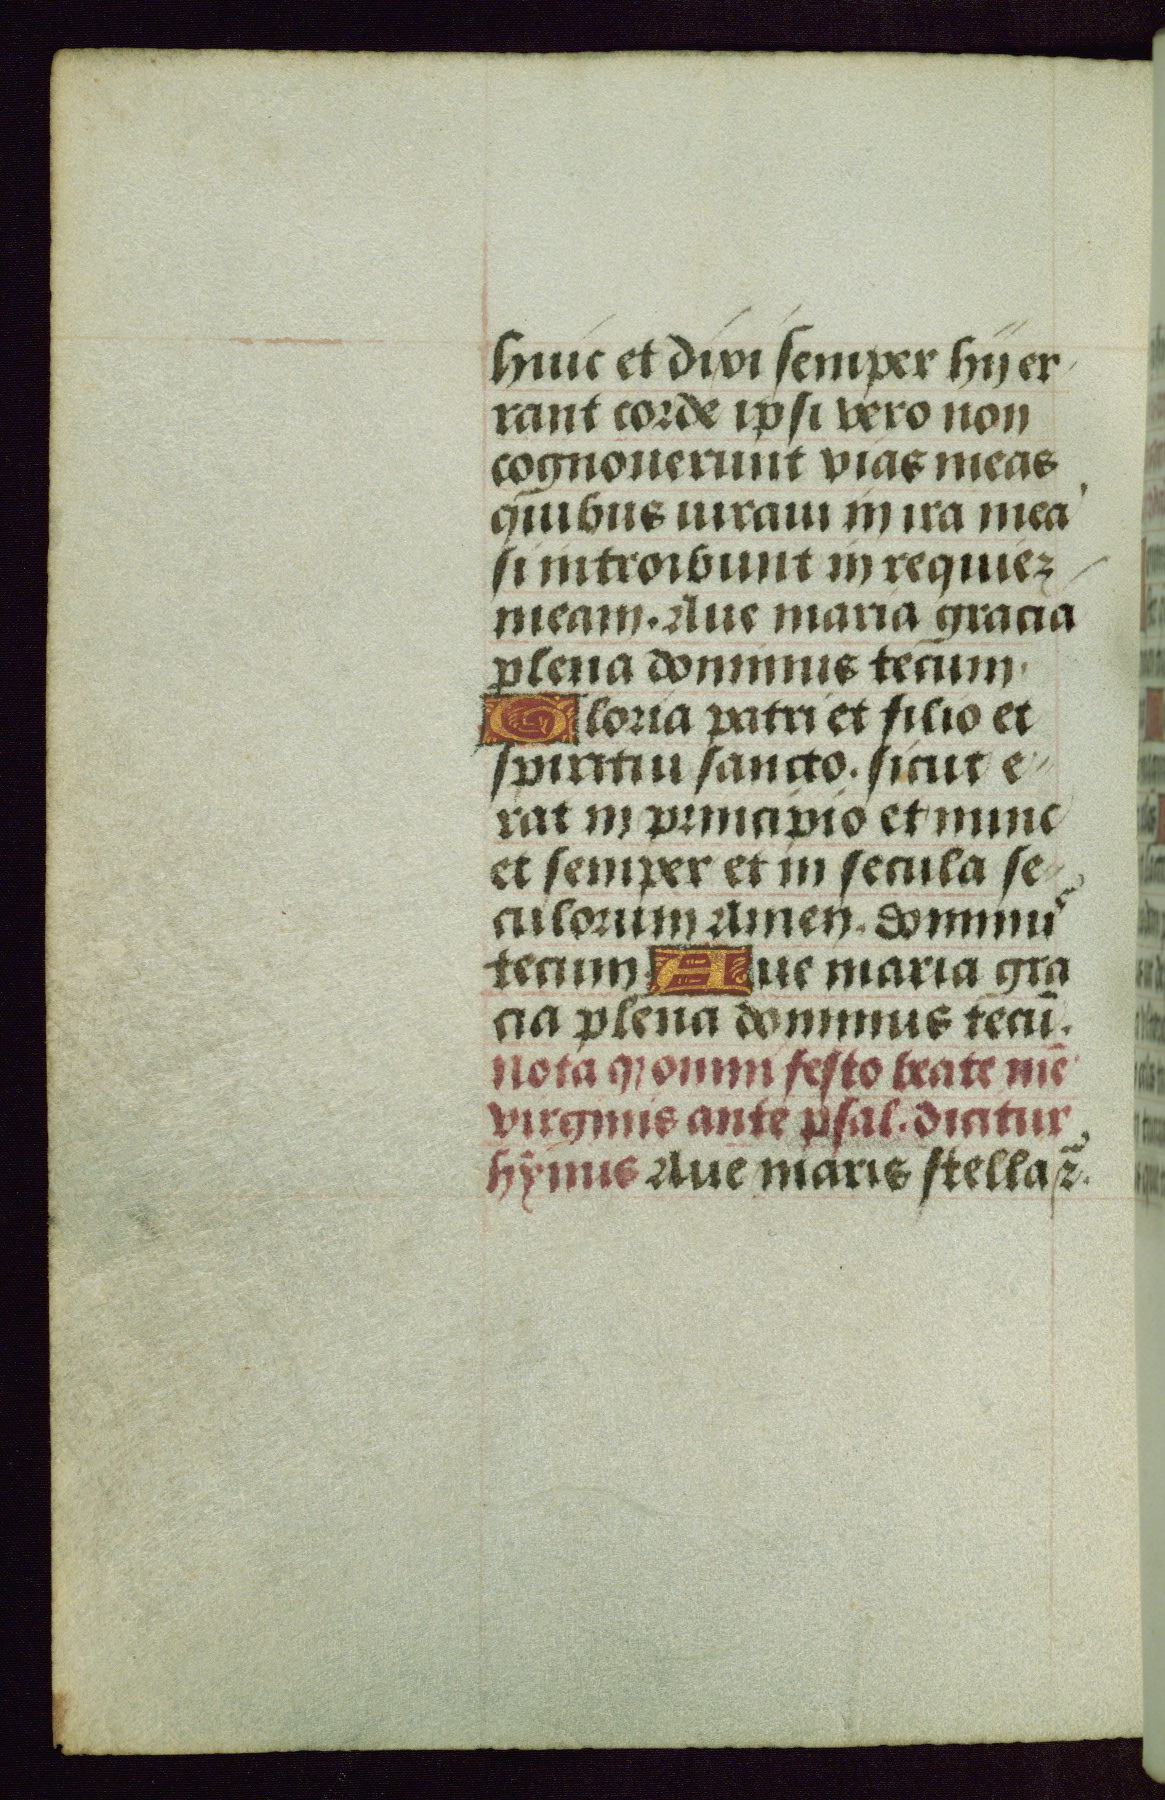 huic et dixi semper hij er
rant corde ipsi vero non
cognouerunt vias meas
quibus iuraui in ira mea
si introibunt in requiez
meam. Aue maria gracia
plena dominus tecum.
Gloria patri et filio et
spiritui sancto. sicut e
rat in principio et nunc
et semper et in secula se
culorum Amen. dominus
tecum. Aue maria gra
cia plena dominus tecū.
Nota qɿ omni festo beate me
virginis ante psal. dicitur
hymus Aue maris stella ꝛ̄.